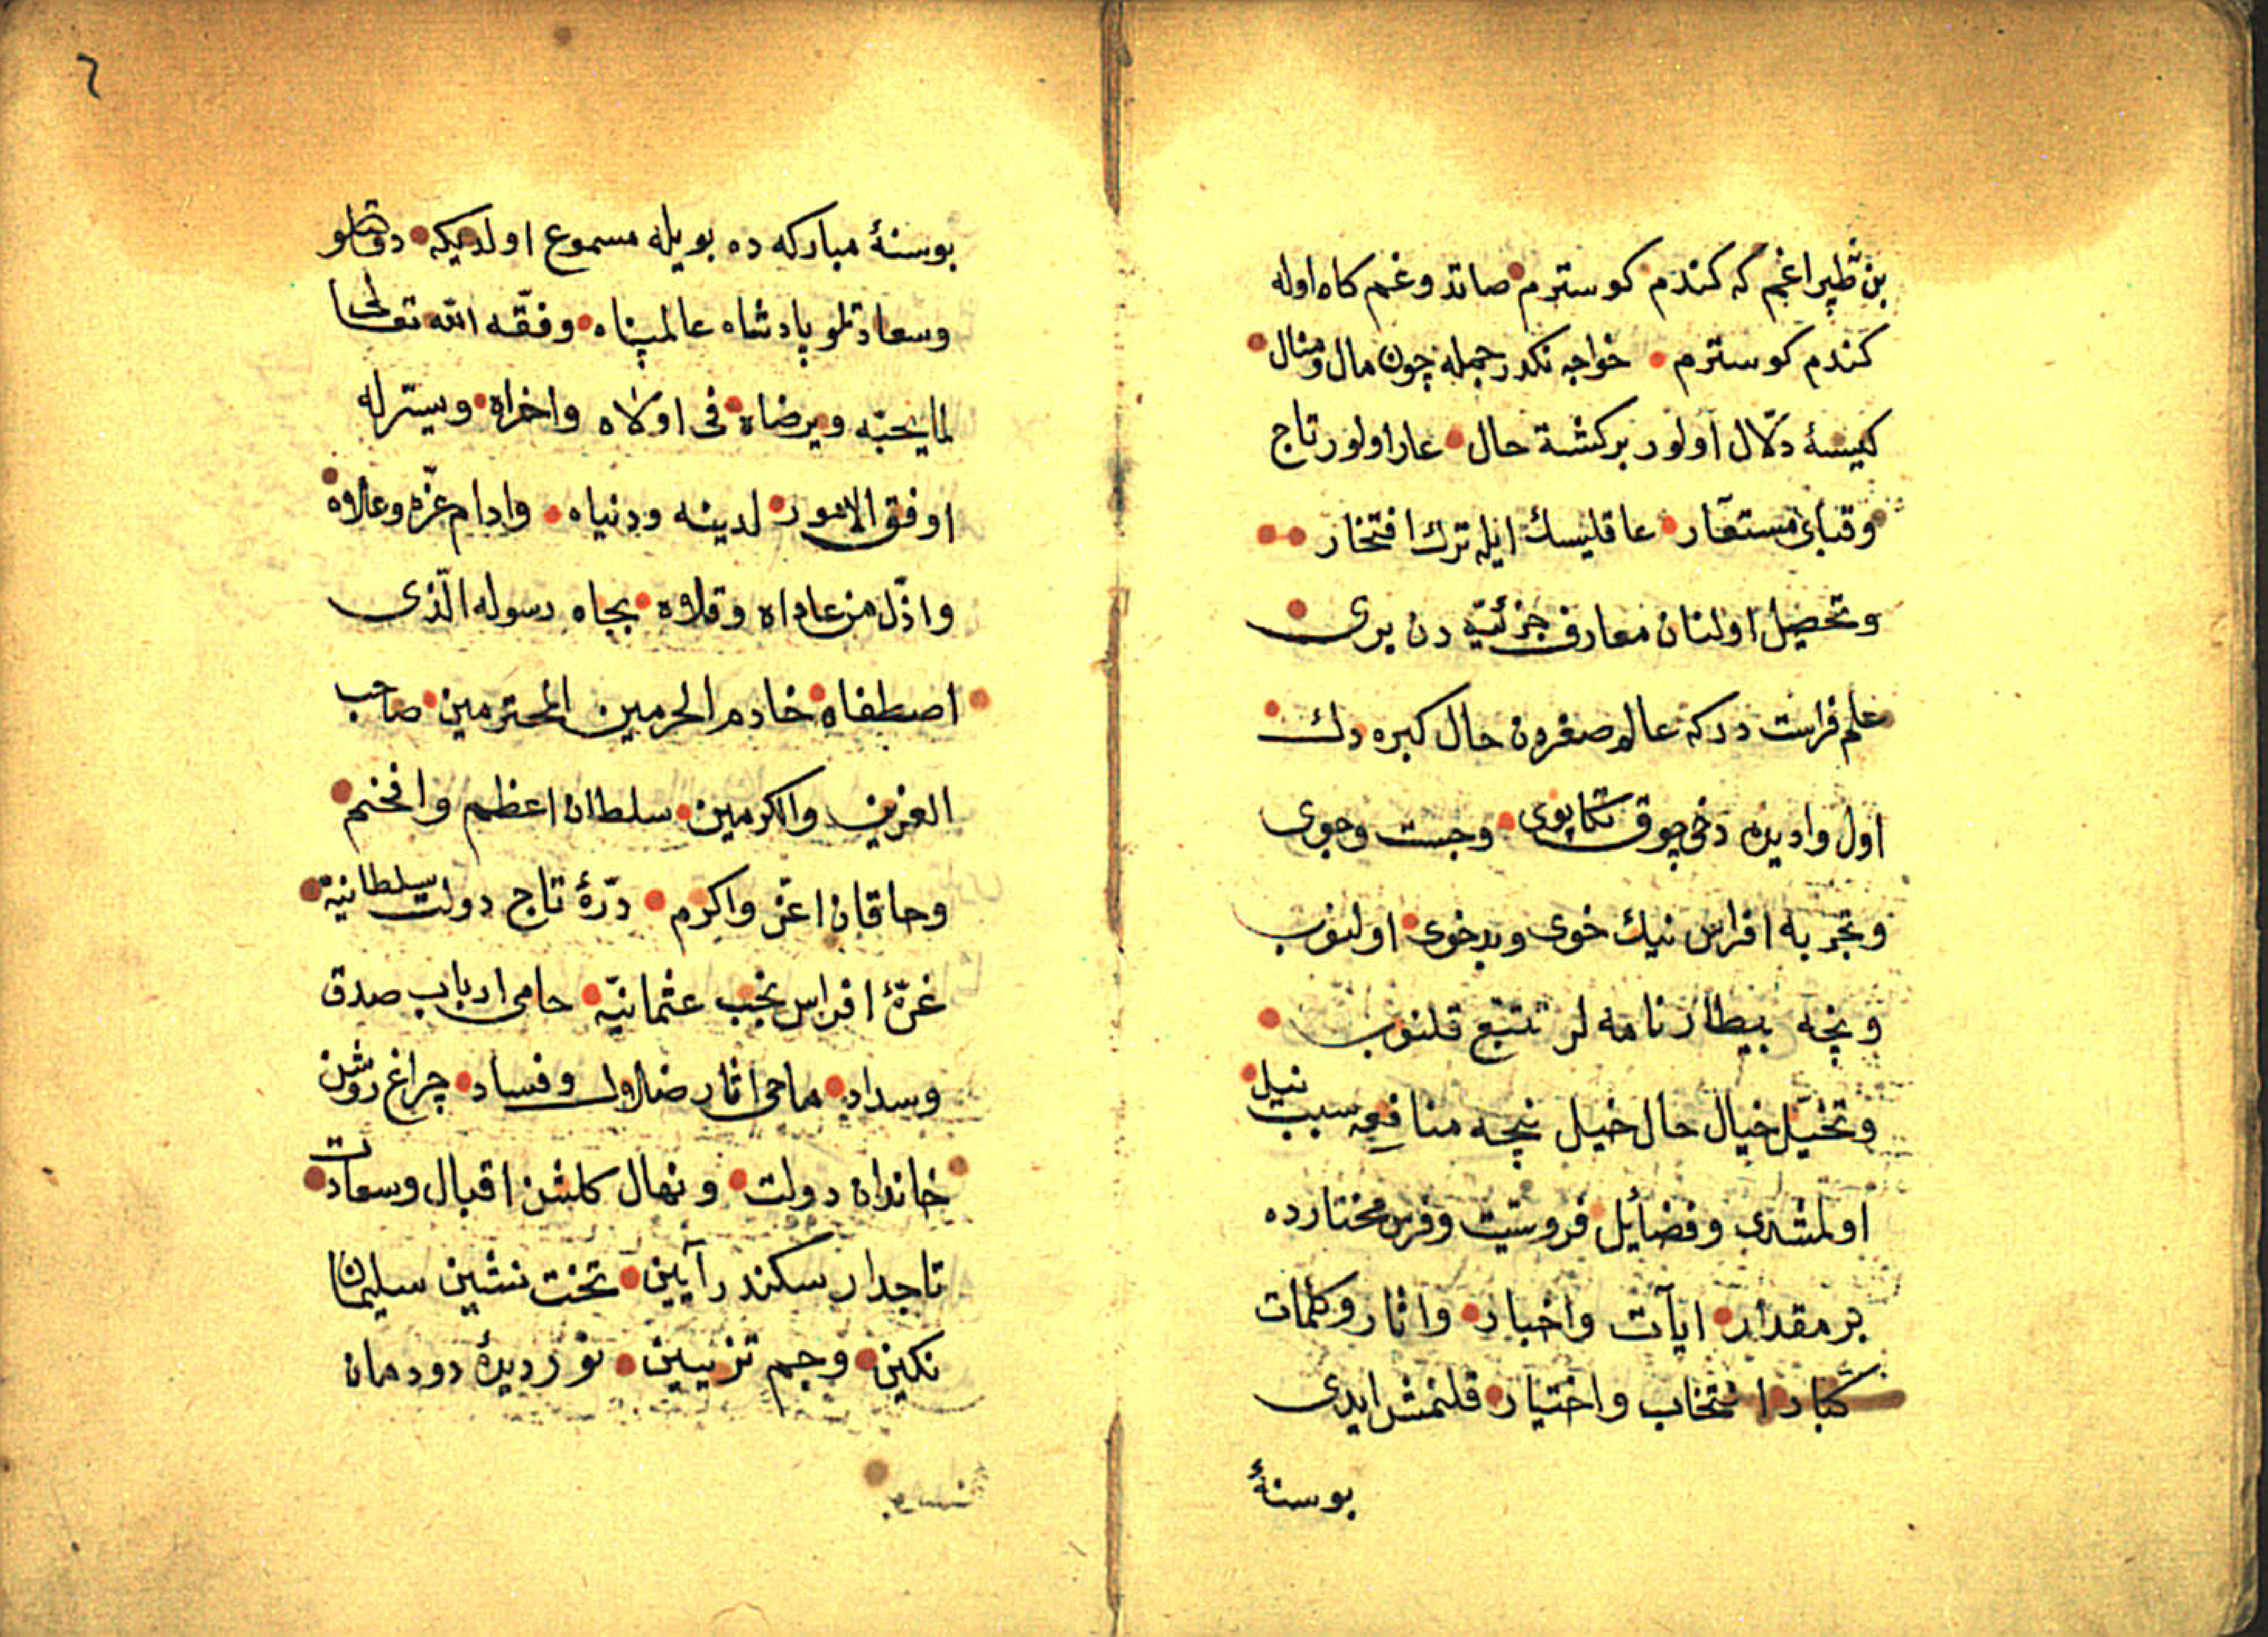 كندم كوسترم • خواجه نكدر جمله چون مال و منال •
كيسهٔ دلّال اولور بركشتهٔ حال • عار اولور تاج
وقباى مستعار • عاقليسك ايله ترك افتخار ••
وتحصيل اولنان معارف جزئيّه دن برى •
علم فراست دركه عالم صغرون حال كبره دك •
اول واديده دخى چوق تكاپوى • وجست وجوى
وتجربه افراس نيك خوى وبدخوى • اولنوب
ونچه بيطار نامه لر تتبع قلنوب •
وتخيّل خيال حال خيل نيچه منافعه سبب نيل •
اولمشدى وفضايل فروسيت وفرس مختارده
بر مقدار • ايآت واخبار • واثار وكلمات
كبار انتخاب واختيار • قلنمش ايدى
بوسنهٔ
٦
بوسنهٔ مباركه ده بويله مسموع اولديكه • دولتلو
وسعادتلو پادشاه عالمپناه • وفقّه الله تعالى
لما يحبّه ويرضاه • فى اولاه واخراه • ويسّر له
اوفق الامور • لدينه ودنياه • وادام عزّه وعلاه •
واذلّ من عاداه وقلاه • بجاه رسوله الّذى
اصطفاه • خادم الحرمين المحترمين • صاحب
العزين والكرمين • سلطان اعظم وافخم •
وخاقان اعزّ واكرم • درّهٔ تاج دولت سلطانيّه •
غرّهٔ افراس نجب عثمانيّه • حامى ارباب صدق
وسداد • ماحى اثار ضلال وفساد • چراغ روشن
خاندان دولت • ونهال كلشن اقبال وسعادت •
تاجدار سكندر آيين • تخت نشين سليمان
نكين • وجم تزيين • نور ديدهٔ دودمان